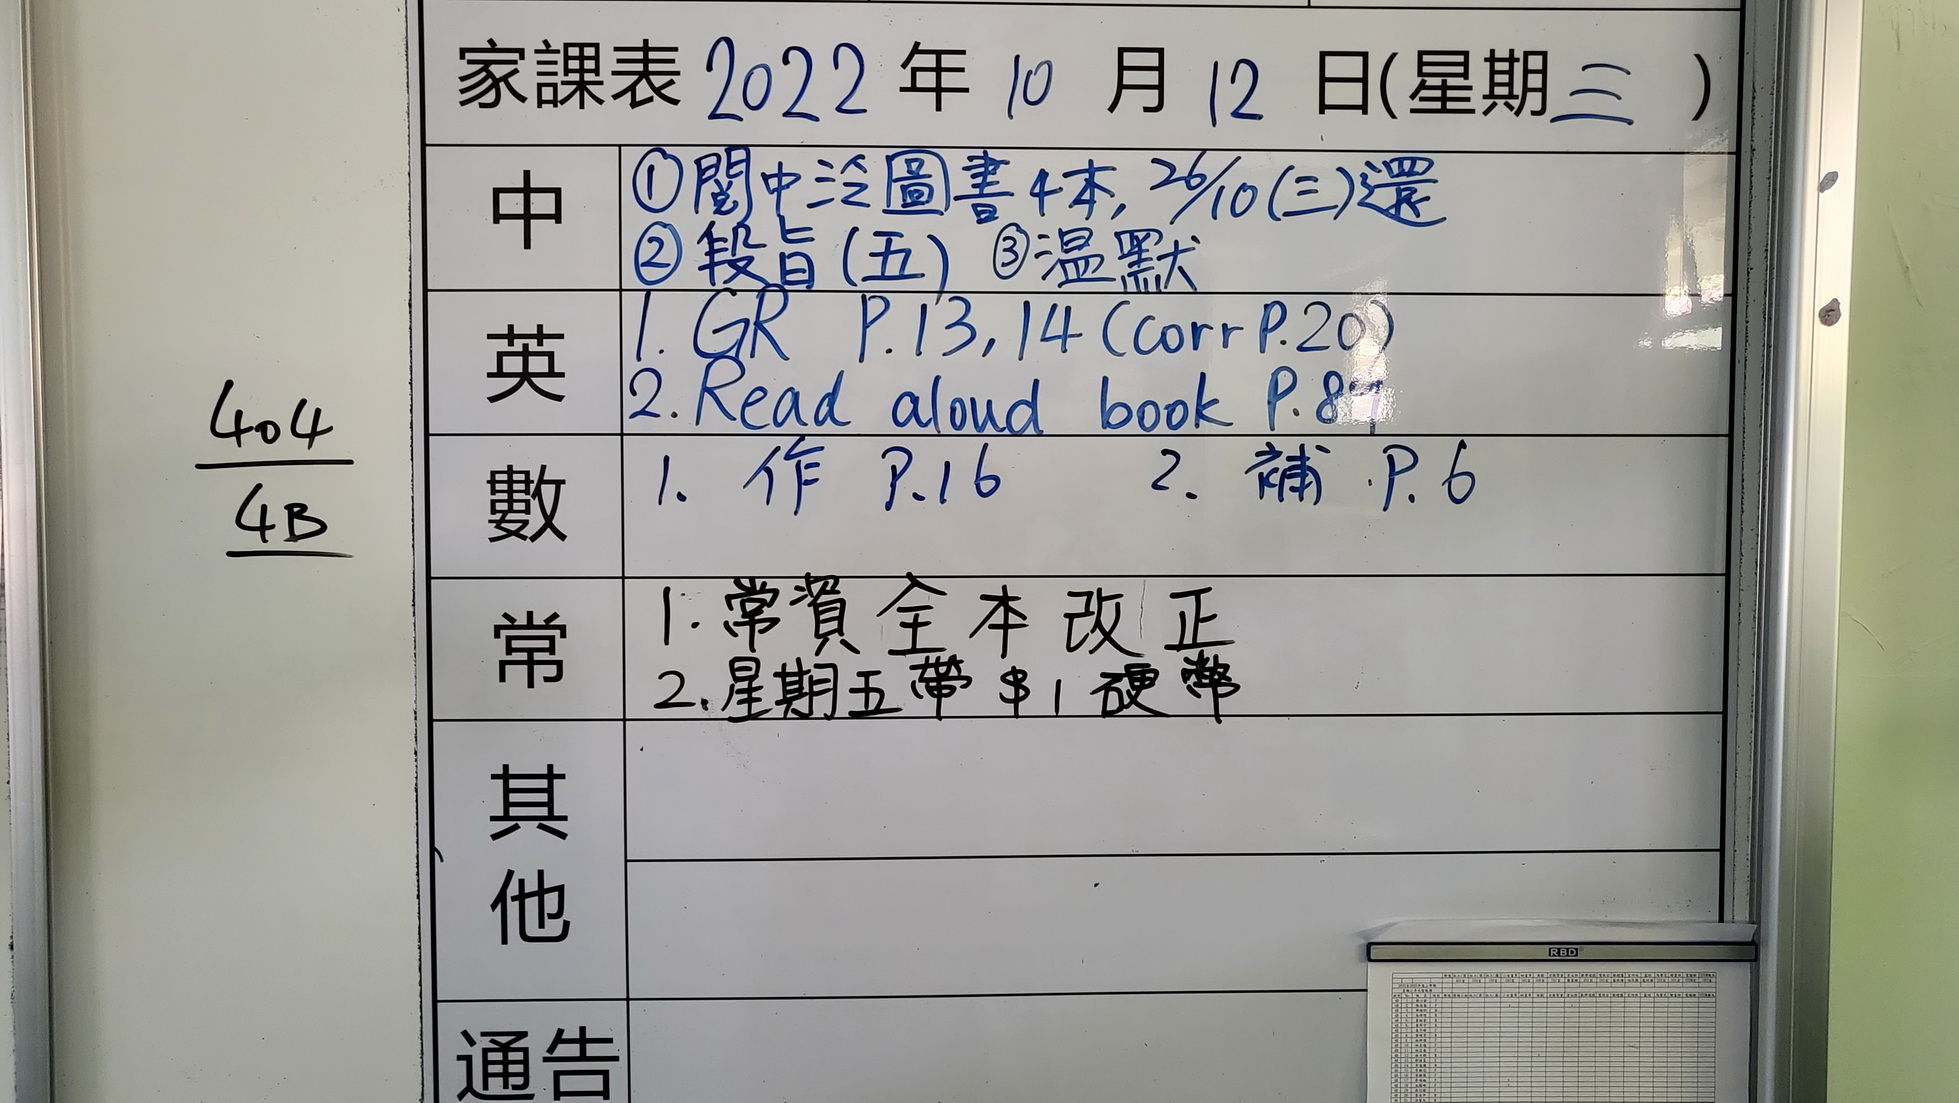 家課表 2022 年 10 月 12 日(星期三)
中
①閱中泛圖書4本, 26/10(三)還
②段旨(五) ③温默
英
1. GR P.13, 14 (corr P.20)
2. Read aloud book P.87
數
1. 作 P.16 2. 補 P.6
常
1. 常資全本改正
2. 星期五帶$1硬幣
其他
通告
404
4B
RBD